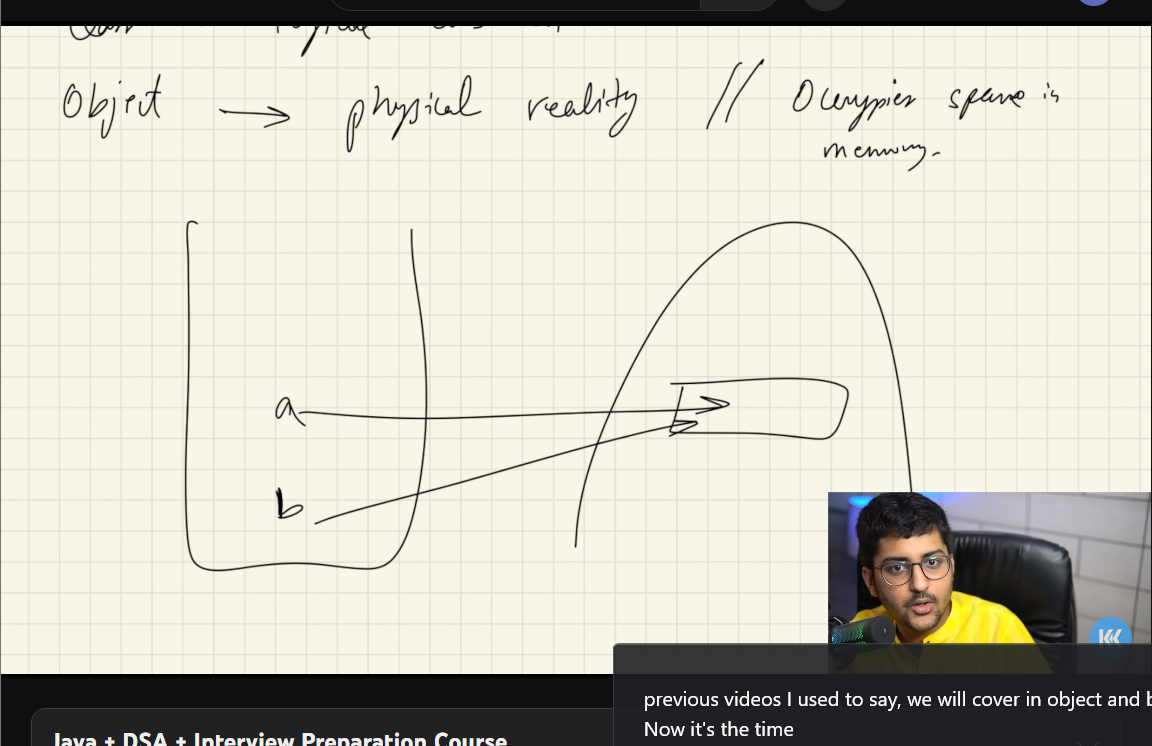 Object → physical reality // Occupies space in
memory.
a
b
KK
previous videos I used to say, we will cover in object and b
Now it's the time
Java + DSA + Interview Preparation Course